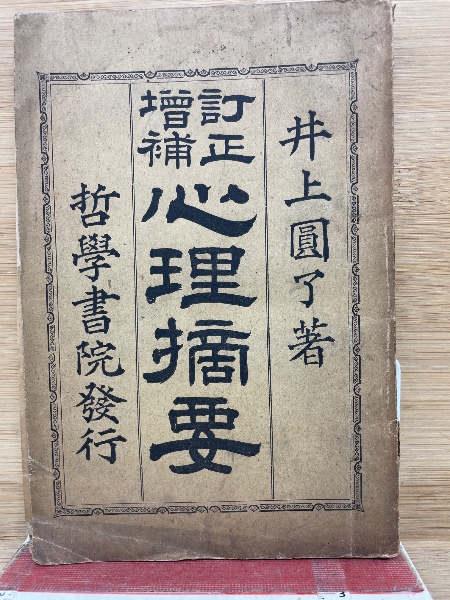 井上圓了著
訂正
增補
心理摘要
哲學書院發行
3